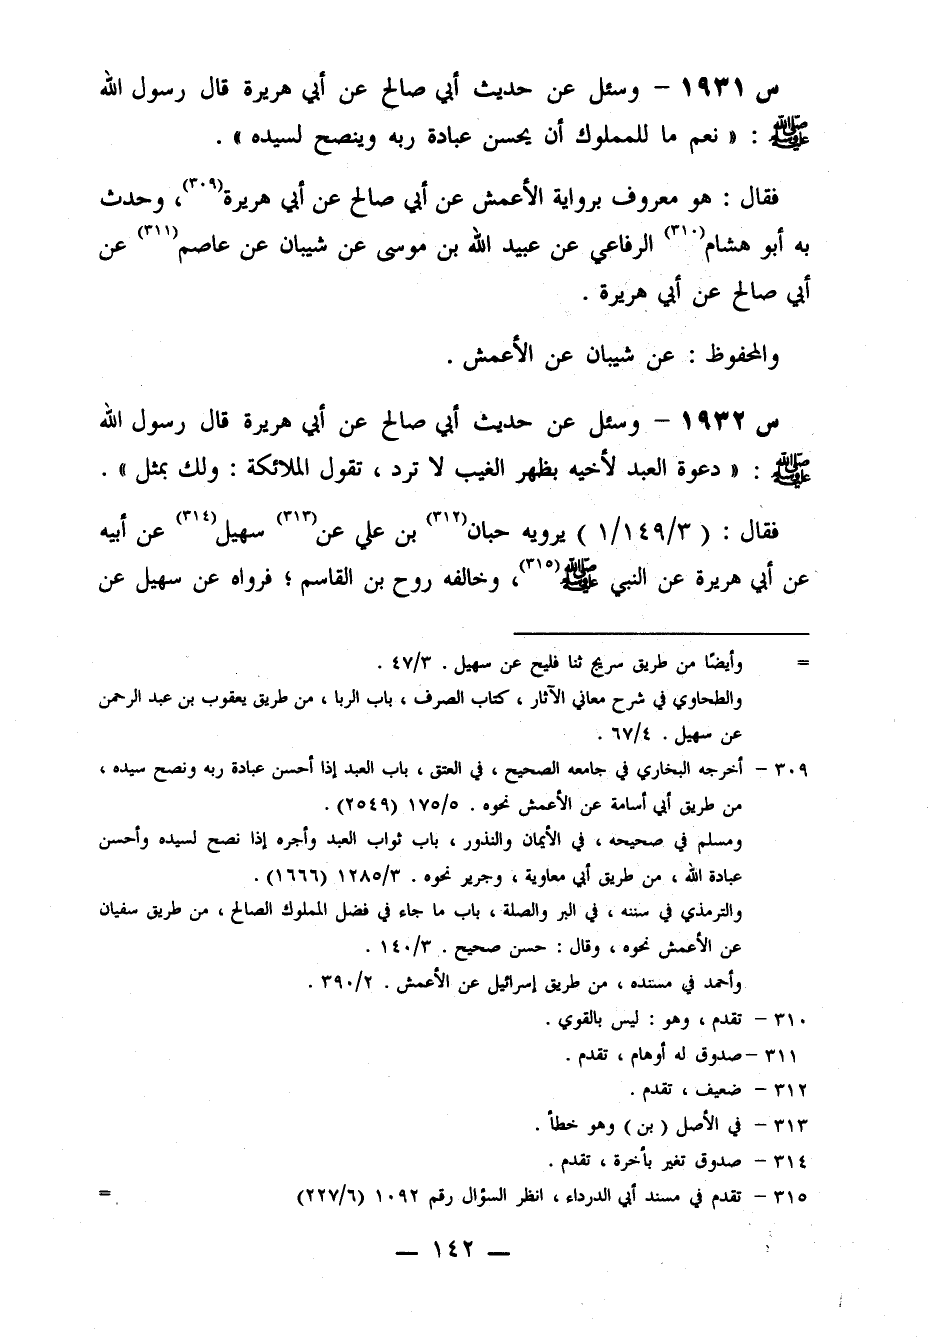 س ١٩٣١ – وسئل عن حديث أبي صالح عن أبي هريرة قال رسول الله
ﷺ : « نعم ما للمملوك أن يحسن عبادة ربه وينصح لسيده » .
فقال : هو معروف برواية الأعمش عن أبي صالح عن أبي هريرة(٣٠٩)، وحدث
به أبو هشام(٣١٠) الرفاعي عن عبيد الله بن موسى عن شيبان عن عاصم(٣١١) عن
أبي صالح عن أبي هريرة .
والمحفوظ : عن شيبان عن الأعمش .
س ١٩٣٢ – وسئل عن حديث أبي صالح عن أبي هريرة قال رسول الله
ﷺ : « دعوة العبد لأخيه بظهر الغيب لا ترد ، تقول الملائكة : ولك بمثل » .
فقال : ( ١/١٤٩/٣ ) يرويه حبان(٣١٢) بن علي عن(٣١٣) سهيل(٣١٤) عن أبيه
عن أبي هريرة عن النبي ﷺ(٣١٥)، وخالفه روح بن القاسم ؛ فرواه عن سهيل عن
= وأيضًا من طريق سريج ثنا فليح عن سهيل . ٤٧/٣ .
والطحاوي في شرح معاني الآثار ، كتاب الصرف ، باب الربا ، من طريق يعقوب بن عبد الرحمن
عن سهيل . ٦٧/٤ .
٣٠٩ – أخرجه البخاري في جامعه الصحيح ، في العتق ، باب العبد إذا أحسن عبادة ربه ونصح سيده ،
من طريق أبي أسامة عن الأعمش نحوه . ١٧٥/٥ (٢٥٤٩) .
ومسلم في صحيحه ، في الأيمان والنذور ، باب ثواب العبد وأجره إذا نصح لسيده وأحسن
عبادة الله ، من طريق أبي معاوية ، وجرير نحوه . ١٢٨٥/٣ (١٦٦٦) .
والترمذي في سننه ، في البر والصلة ، باب ما جاء في فضل المملوك الصالح ، من طريق سفيان
عن الأعمش نحوه ، وقال : حسن صحيح . ١٤٠/٣ .
وأحمد في مسنده ، من طريق إسرائيل عن الأعمش . ٣٩٠/٢ .
٣١٠ – تقدم ، وهو : ليس بالقوي .
٣١١ – صدوق له أوهام ، تقدم .
٣١٢ – ضعيف ، تقدم .
٣١٣ – في الأصل ( بن ) وهو خطأ .
٣١٤ – صدوق تغير بأخرة ، تقدم .
٣١٥ – تقدم في مسند أبي الدرداء ، انظر السؤال رقم ١٠٩٢ (٢٢٧/٦) =
— ١٤٢ —